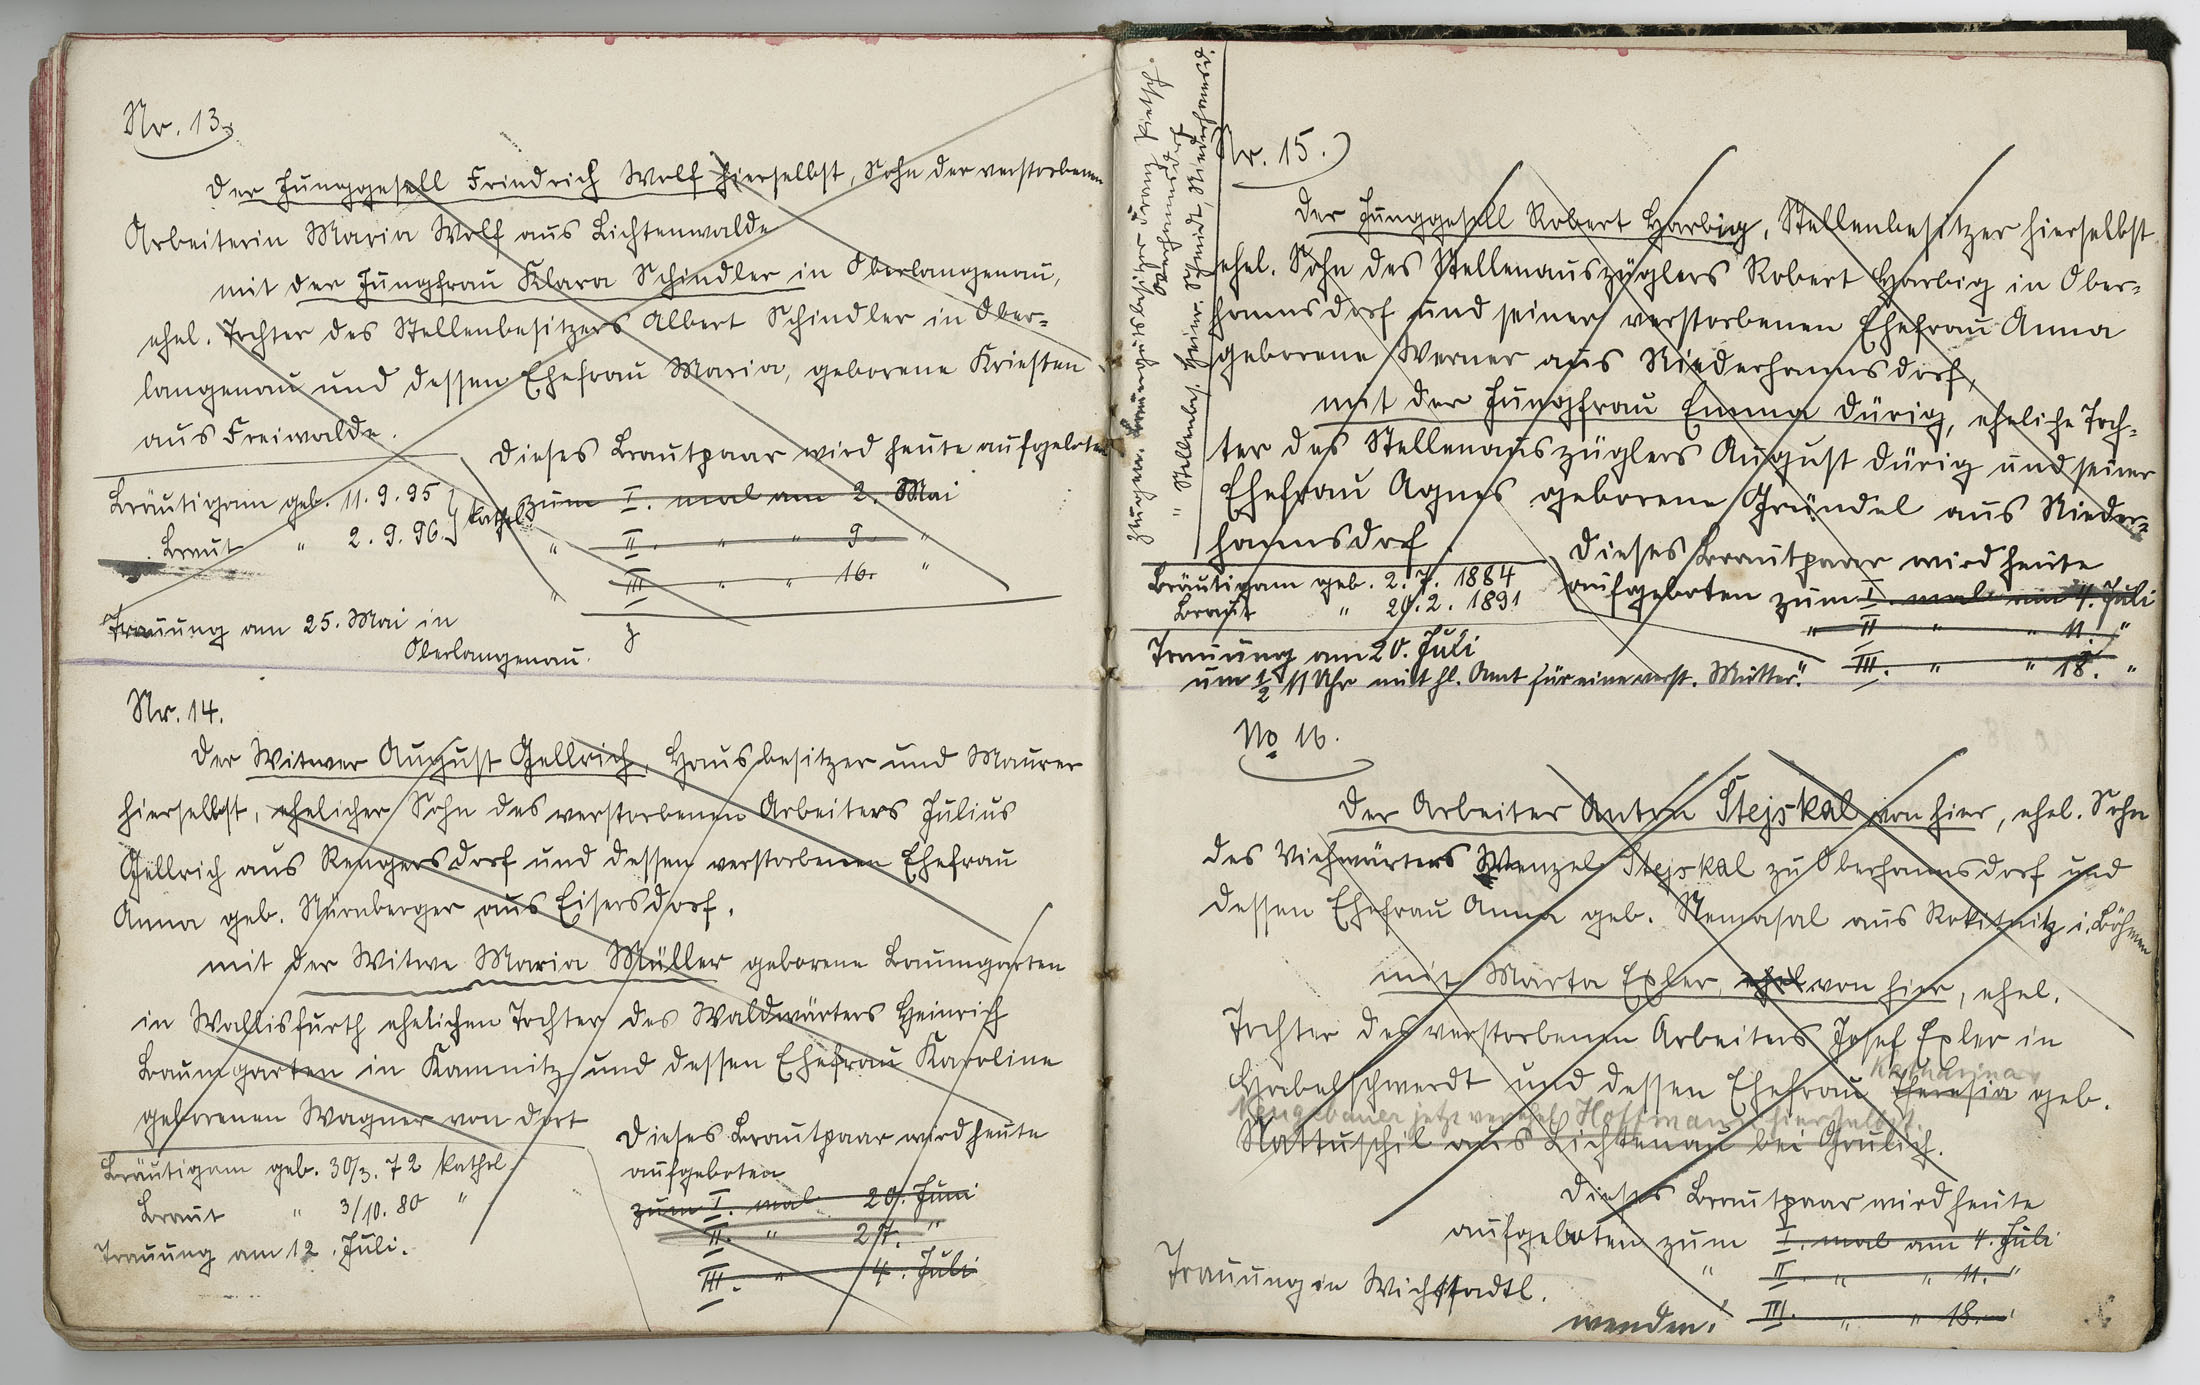 Nr. 13.
Der Junggesell Friedrich Wolf hierselbst, Sohn der verstorbenen
Arbeiterin Maria Wolf aus Lichtenwalde
mit der Jungfrau Klara Schindler in Oberlangenau,
ehel. Tochter des Stellenbesitzers Albert Schindler in Ober-
langenau und dessen Ehefrau Maria, geborene Kriesten
aus Freiwalde.
Dieses Brautpaar wird heute aufgeboten
Bräutigam geb. 11. 9. 95 } kathol.
Braut " 2. 9. 96.
zum I. mal am 2. Mai
" II. " " 9. "
" III " " 16. "
Trauung am 25. Mai in
Oberlangenau.
Nr. 14.
Der Witwer August Gellrich, Hausbesitzer und Maurer
hierselbst, ehelicher Sohn des verstorbenen Arbeiters Julius
Gellrich aus Rengersdorf und dessen verstorbenen Ehefrau
Anna geb. Nürnberger aus Eisersdorf.
mit der Witwe Maria Müller geborene Baumgarten
in Wallisfurth ehelichen Tochter des Waldwärters Heinrich
Baumgarten in Kamnitz und dessen Ehefrau Karoline
geborenen Wagner von dort
Dieses Brautpaar wird heute
aufgeboten
zum I. mal 20. Juni
II. " 27. "
III. " 4. Juli
Bräutigam geb. 30/3. 72 kathol.
Braut " 3/10. 80 "
Trauung am 12. Juli.
Zeugen: Bauergutsbesitzer Franz Pietsch.
Oberhannsdorf
" Stellenbes. Heinr. Schmidt, Niederhannsd.
Nr. 15.
Der Junggesell Robert Harbig, Stellenbesitzer hierselbst
ehel. Sohn des Stellenauszüglers Robert Harbig in Ober-
hannsdorf und seiner verstorbenen Ehefrau Anna
geborene Werner aus Niederhannsdorf,
mit der Jungfrau Emma Dürig, eheliche Toch-
ter des Stellenauszüglers August Dürig und seiner
Ehefrau Agnes geborene Gründel aus Nieder-
hannsdorf.
Dieses Brautpaar wird heute
aufgeboten zum I. mal am 4. Juli
" II " " 11. "
III. " " 18. "
Bräutigam geb. 2. 7. 1884
Braut " 20. 2. 1891
Trauung am 20. Juli
um 1/2 11 Uhr mit hl. Amt für eine verst. Mutter."
No 16.
Der Arbeiter Anton Stejskal von hier, ehel. Sohn
des Viehwärters Wenzel Stejskal zu Oberhannsdorf und
dessen Ehefrau Anna geb. aus Rokitnitz i. Böhmen
mit Marta Exler, ehel von hier, ehel.
Tochter des verstorbenen Arbeiters Josef Exler in
Habelschwerdt und dessen Ehefrau Theresia geb.
Katharina
Neugebauer jetzt verehel. Hoffmann hierselbst.
Nattuschil aus Lichtenau bei Grulich.
Dieses Brautpaar wird heute
aufgeboten zum I. mal am 4. Juli
" II. " " 11. "
III. " " 18. "
Trauung in Wichstadtl.
wenden!